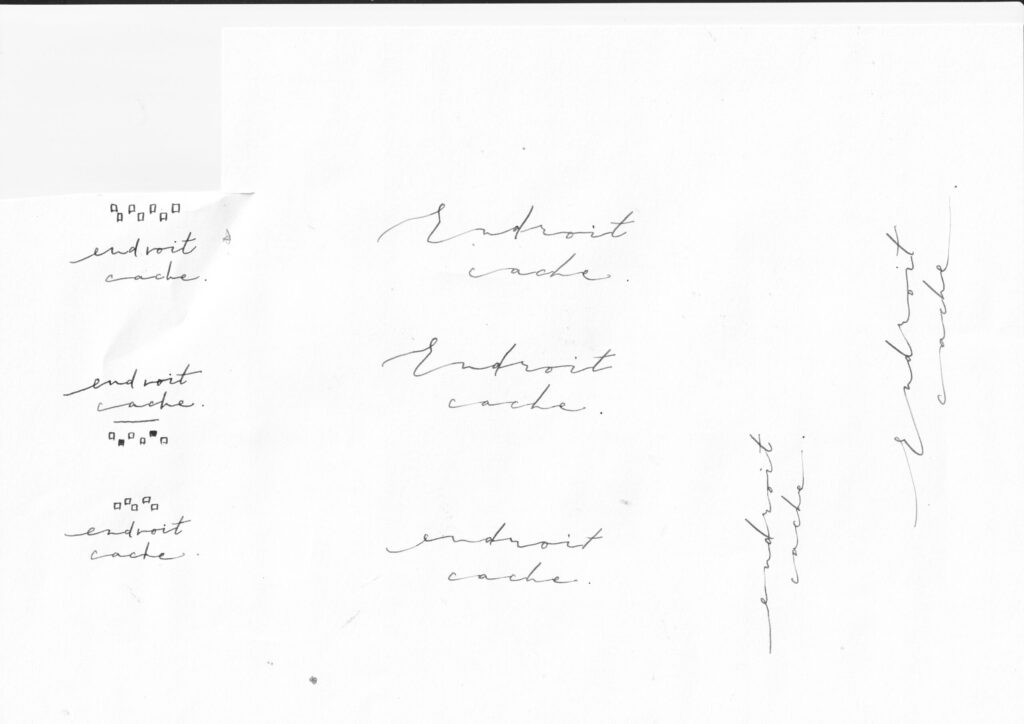 endroit
cache.
endroit
cache.
endroit
cache.
Endroit
cache.
Endroit
cache.
endroit
cache.
endroit
cache.
Endroit
cache.